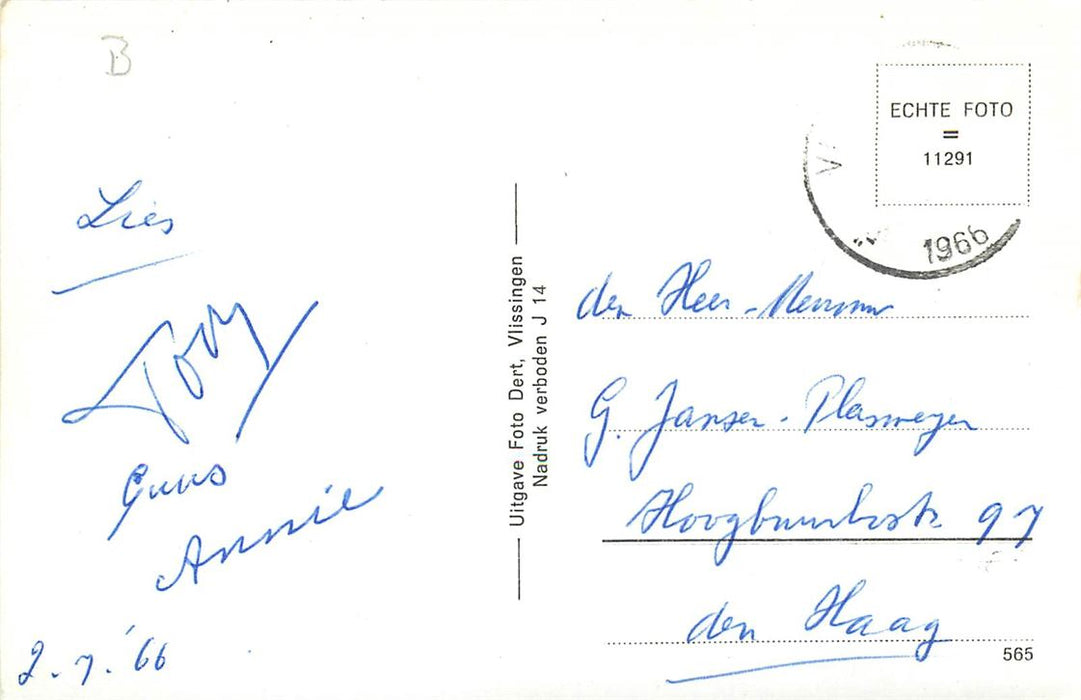 B
Lies
Tony
Guus
Annie
2.7.'66
Uitgave Foto Dert, Vlissingen
Nadruk verboden J 14
ECHTE FOTO
=
11291
1966
den Heer - Mevrouw
G. Jansen - Plasmeyer
97
den Haag
565